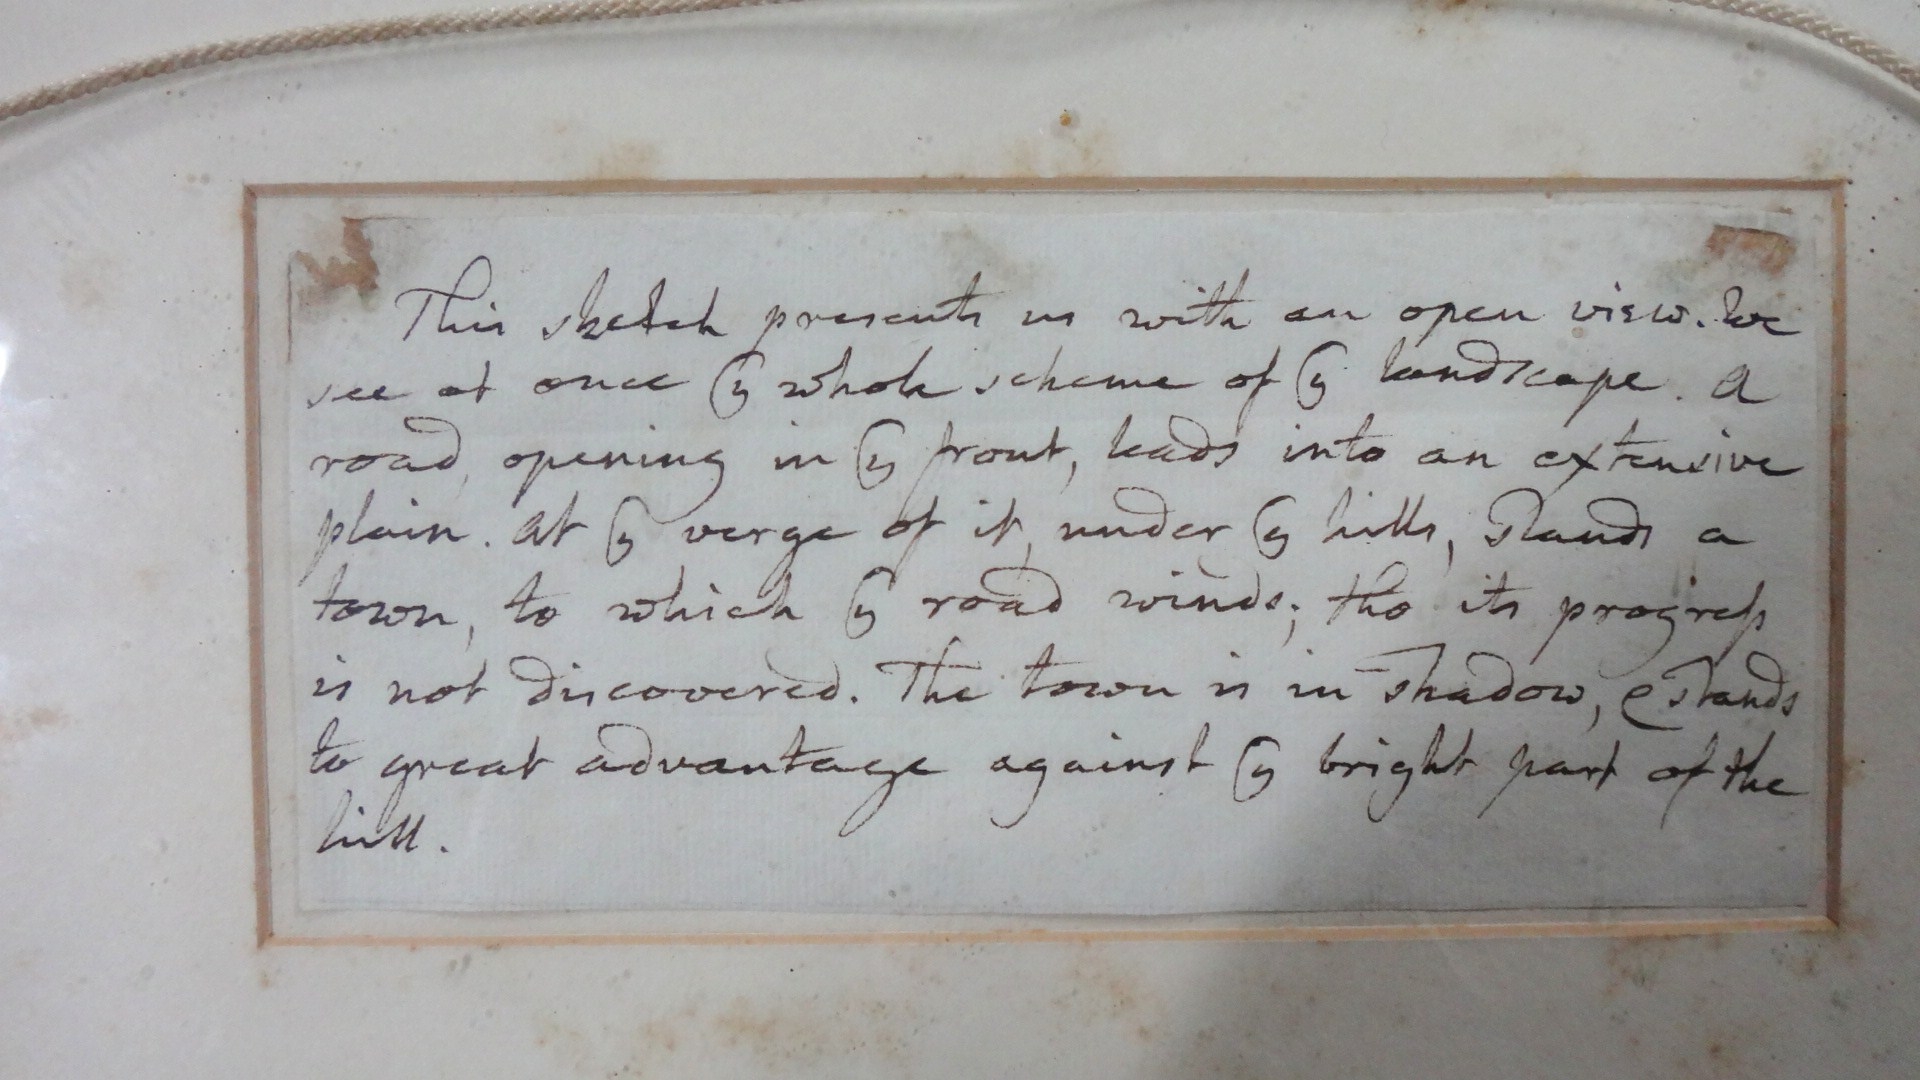 This sketch presents us with an open view. We
see at once ye whole scheme of ye landscape. A
road, opening in ye front, leads into an extensive
plain. At ye verge of it, under ye hills, stands a
town, to which ye road winds; tho its progress
is not discovered. The town is in shadow, & stands
to great advantage against ye bright part of the
hill.